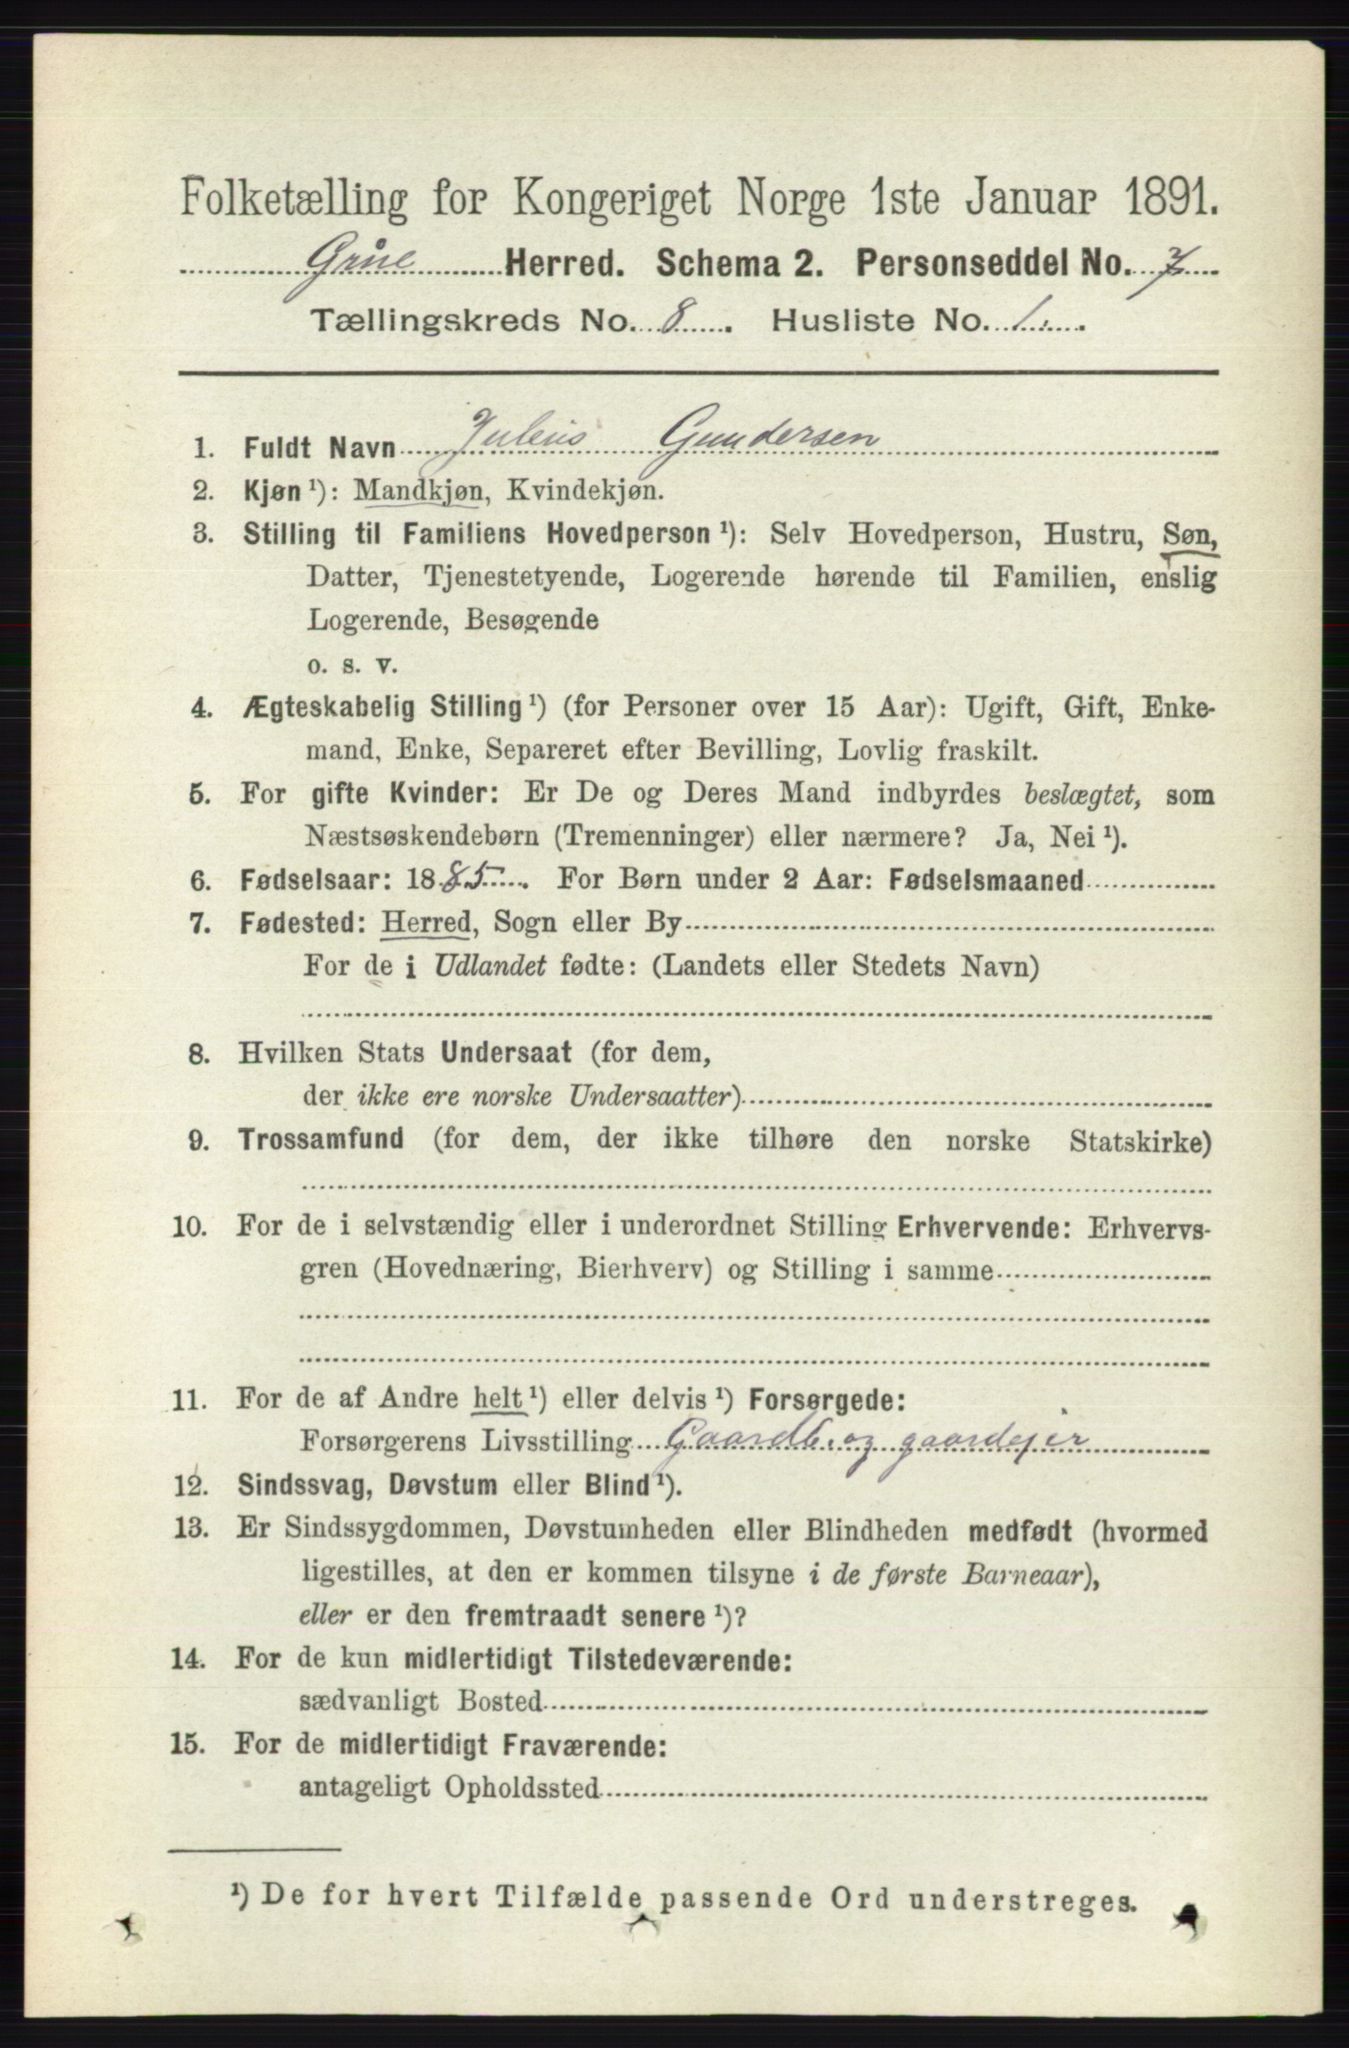 Folketælling for Kongeriget Norge 1ste Januar 1891.
Grue Herred. Schema 2. Personseddel No. 7
Tællingskreds No. 8. Husliste No. 1.
1. Fuldt Navn Julius Gundersen
2. Kjøn ¹): Mandkjøn, Kvindekjøn.
3. Stilling til Familiens Hovedperson ¹): Selv Hovedperson, Hustru, Søn,
Datter, Tjenestetyende, Logerende hørende til Familien, enslig
Logerende, Besøgende
o. s. v.
4. Ægteskabelig Stilling ¹) (for Personer over 15 Aar): Ugift, Gift, Enke-
mand, Enke, Separeret efter Bevilling, Lovlig fraskilt.
5. For gifte Kvinder: Er De og Deres Mand indbyrdes beslægtet, som
Næstsøskendebørn (Tremenninger) eller nærmere? Ja, Nei ¹).
6. Fødselsaar: 1885. For Børn under 2 Aar: Fødselsmaaned
7. Fødested: Herred, Sogn eller By
For de i Udlandet fødte: (Landets eller Stedets Navn)
8. Hvilken Stats Undersaat (for dem,
der ikke ere norske Undersaatter)
9. Trossamfund (for dem, der ikke tilhøre den norske Statskirke)
10. For de i selvstændig eller i underordnet Stilling Erhvervende: Erhvervs-
gren (Hovednæring, Bierhverv) og Stilling i samme
11. For de af Andre helt ¹) eller delvis ¹) Forsørgede:
Forsørgerens Livsstilling Gaardb. og gaardejer
12. Sindssvag, Døvstum eller Blind ¹).
13. Er Sindssygdommen, Døvstumheden eller Blindheden medfødt (hvormed
ligestilles, at den er kommen tilsyne i de første Barneaar),
eller er den fremtraadt senere ¹)?
14. For de kun midlertidigt Tilstedeværende:
sædvanligt Bosted
15. For de midlertidigt Fraværende:
antageligt Opholdssted
¹) De for hvert Tilfælde passende Ord understreges.